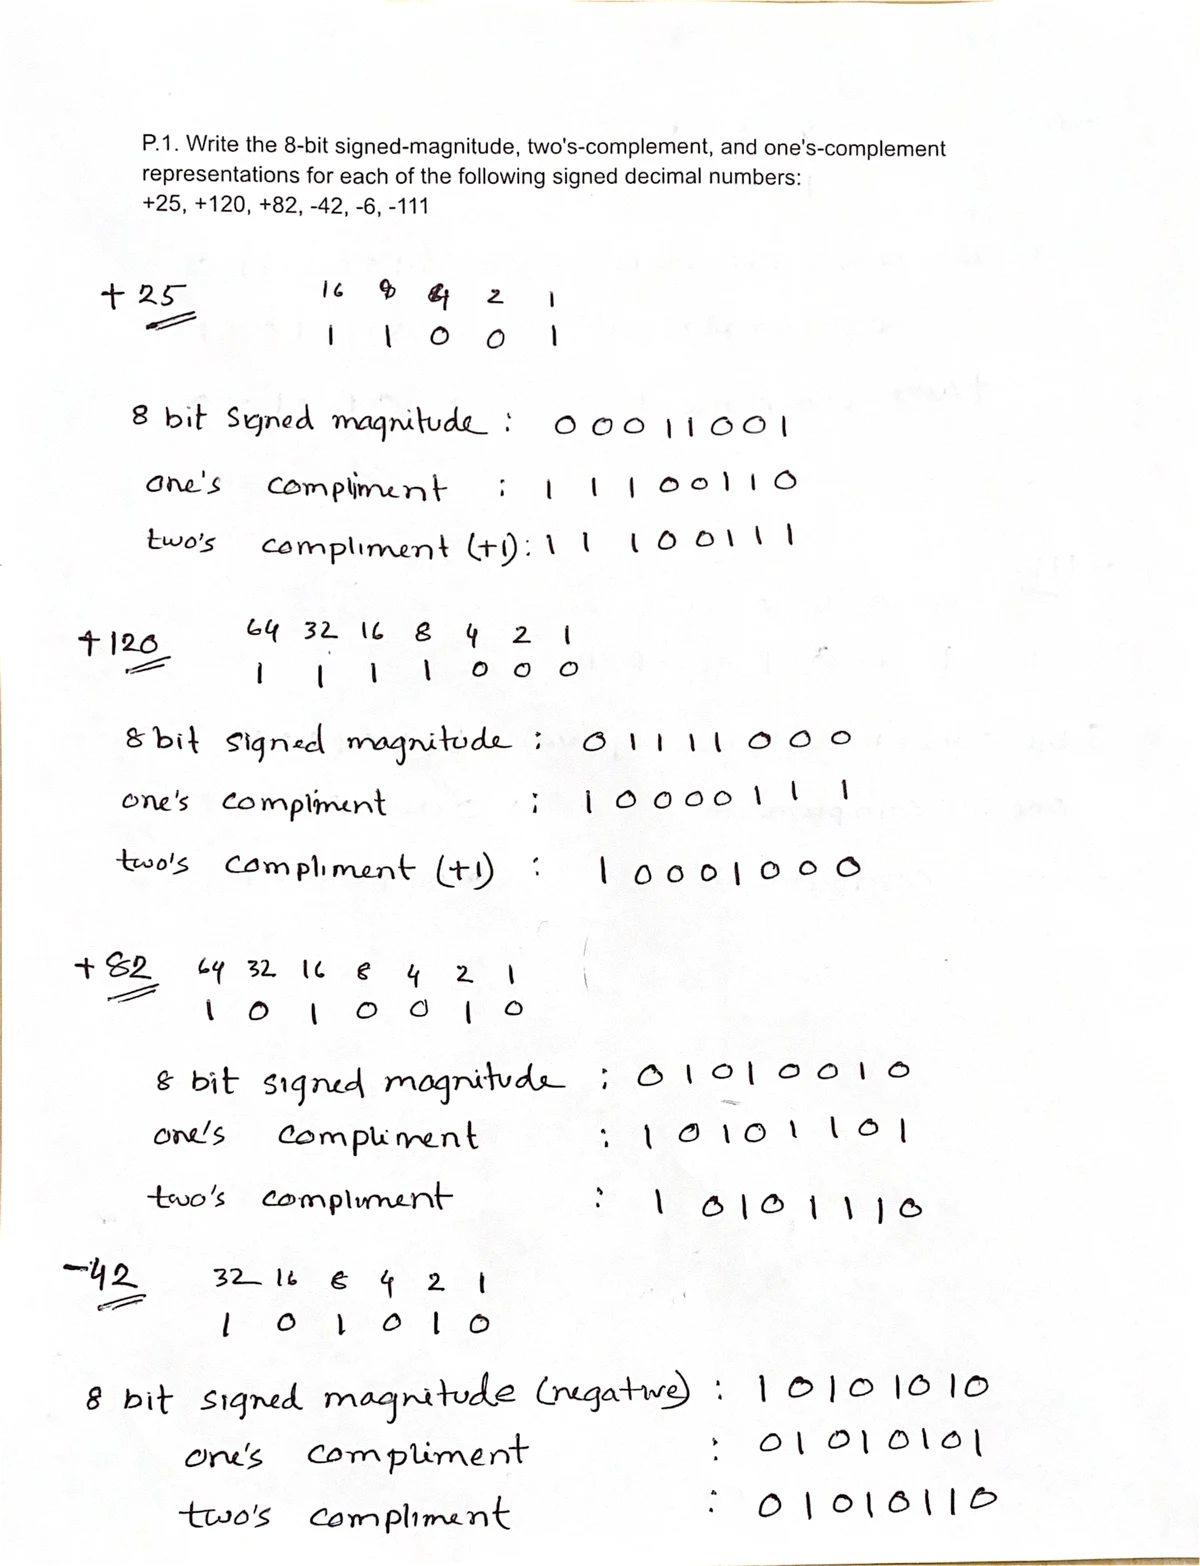 P.1. Write the 8-bit signed-magnitude, two's-complement, and one's-complement
representations for each of the following signed decimal numbers:
+25, +120, +82, -42, -6, -111
+25 16 8 4 2 1
1 1 0 0 1
8 bit Signed magnitude : 00011001
one's compliment : 11100110
two's compliment (+1) : 11100111
+120 64 32 16 8 4 2 1
1 1 1 1 0 0 0
8 bit signed magnitude : 01111000
one's compliment : 10000111
two's compliment (+1) : 10001000
+82 64 32 16 8 4 2 1
1 0 1 0 0 1 0
8 bit signed magnitude : 01010010
one's compliment : 10101101
two's compliment : 10101110
-42 32 16 8 4 2 1
1 0 1 0 1 0
8 bit signed magnitude (negative) : 10101010
one's compliment : 01010101
two's compliment : 01010110